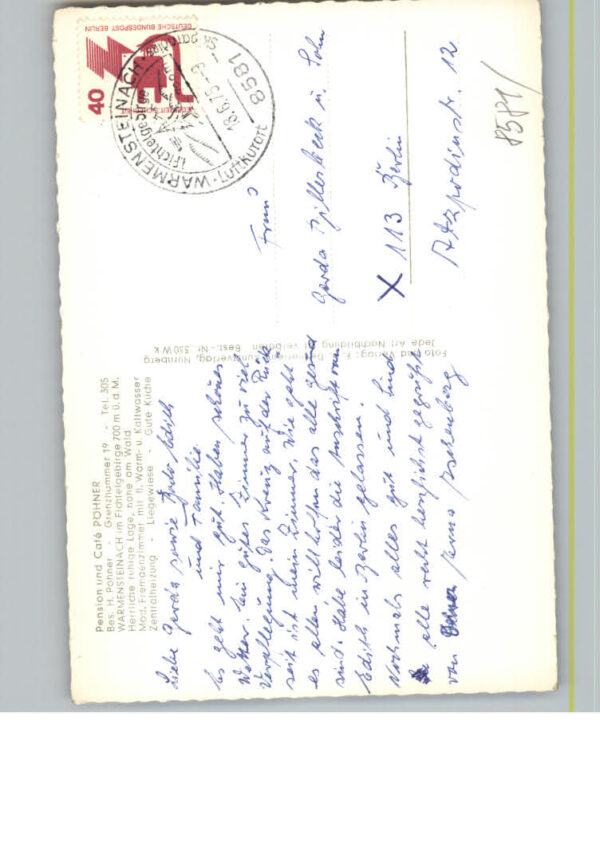 Pension und Café PÖHNER
Bes. H. Pöhner - Grenzhammer 19 - Tel. 305
WARMENSTEINACH im Fichtelgebirge 700 m ü. d. M.
Herrliche ruhige Lage, nahe am Wald
Mod. Fremdenzimmer mit fl. Warm- u. Kaltwasser
Zentralheizung - Liegewiese - Gute Küche
Liebe Gerda sowie
und Familie.
Es geht mir gut. Haben schönes
Wetter. Ein gutes Zimmer zu viel
Verpflegung. Das Kreuz auf der
seit ist mein Zimmer. Wie geht
es allen will hoffen das alle gesund
sind. Habe leider die Anschrift von
Edith in Berlin gelassen.
Nochmals alles gut und lieb
alle recht herzlichst gegrüßt
von
Foto und Verlag:
Jede Art Nachbildung verboten Best.-Nr. 350 W k
40
DEUTSCHE BUNDESPOST BERLIN
WARMENSTEINACH
(Fichtelgebirge)
Luftkurort
8581
18.6.75
Frau
Gerda u. Sohn
X 113 Berlin
12
8581/